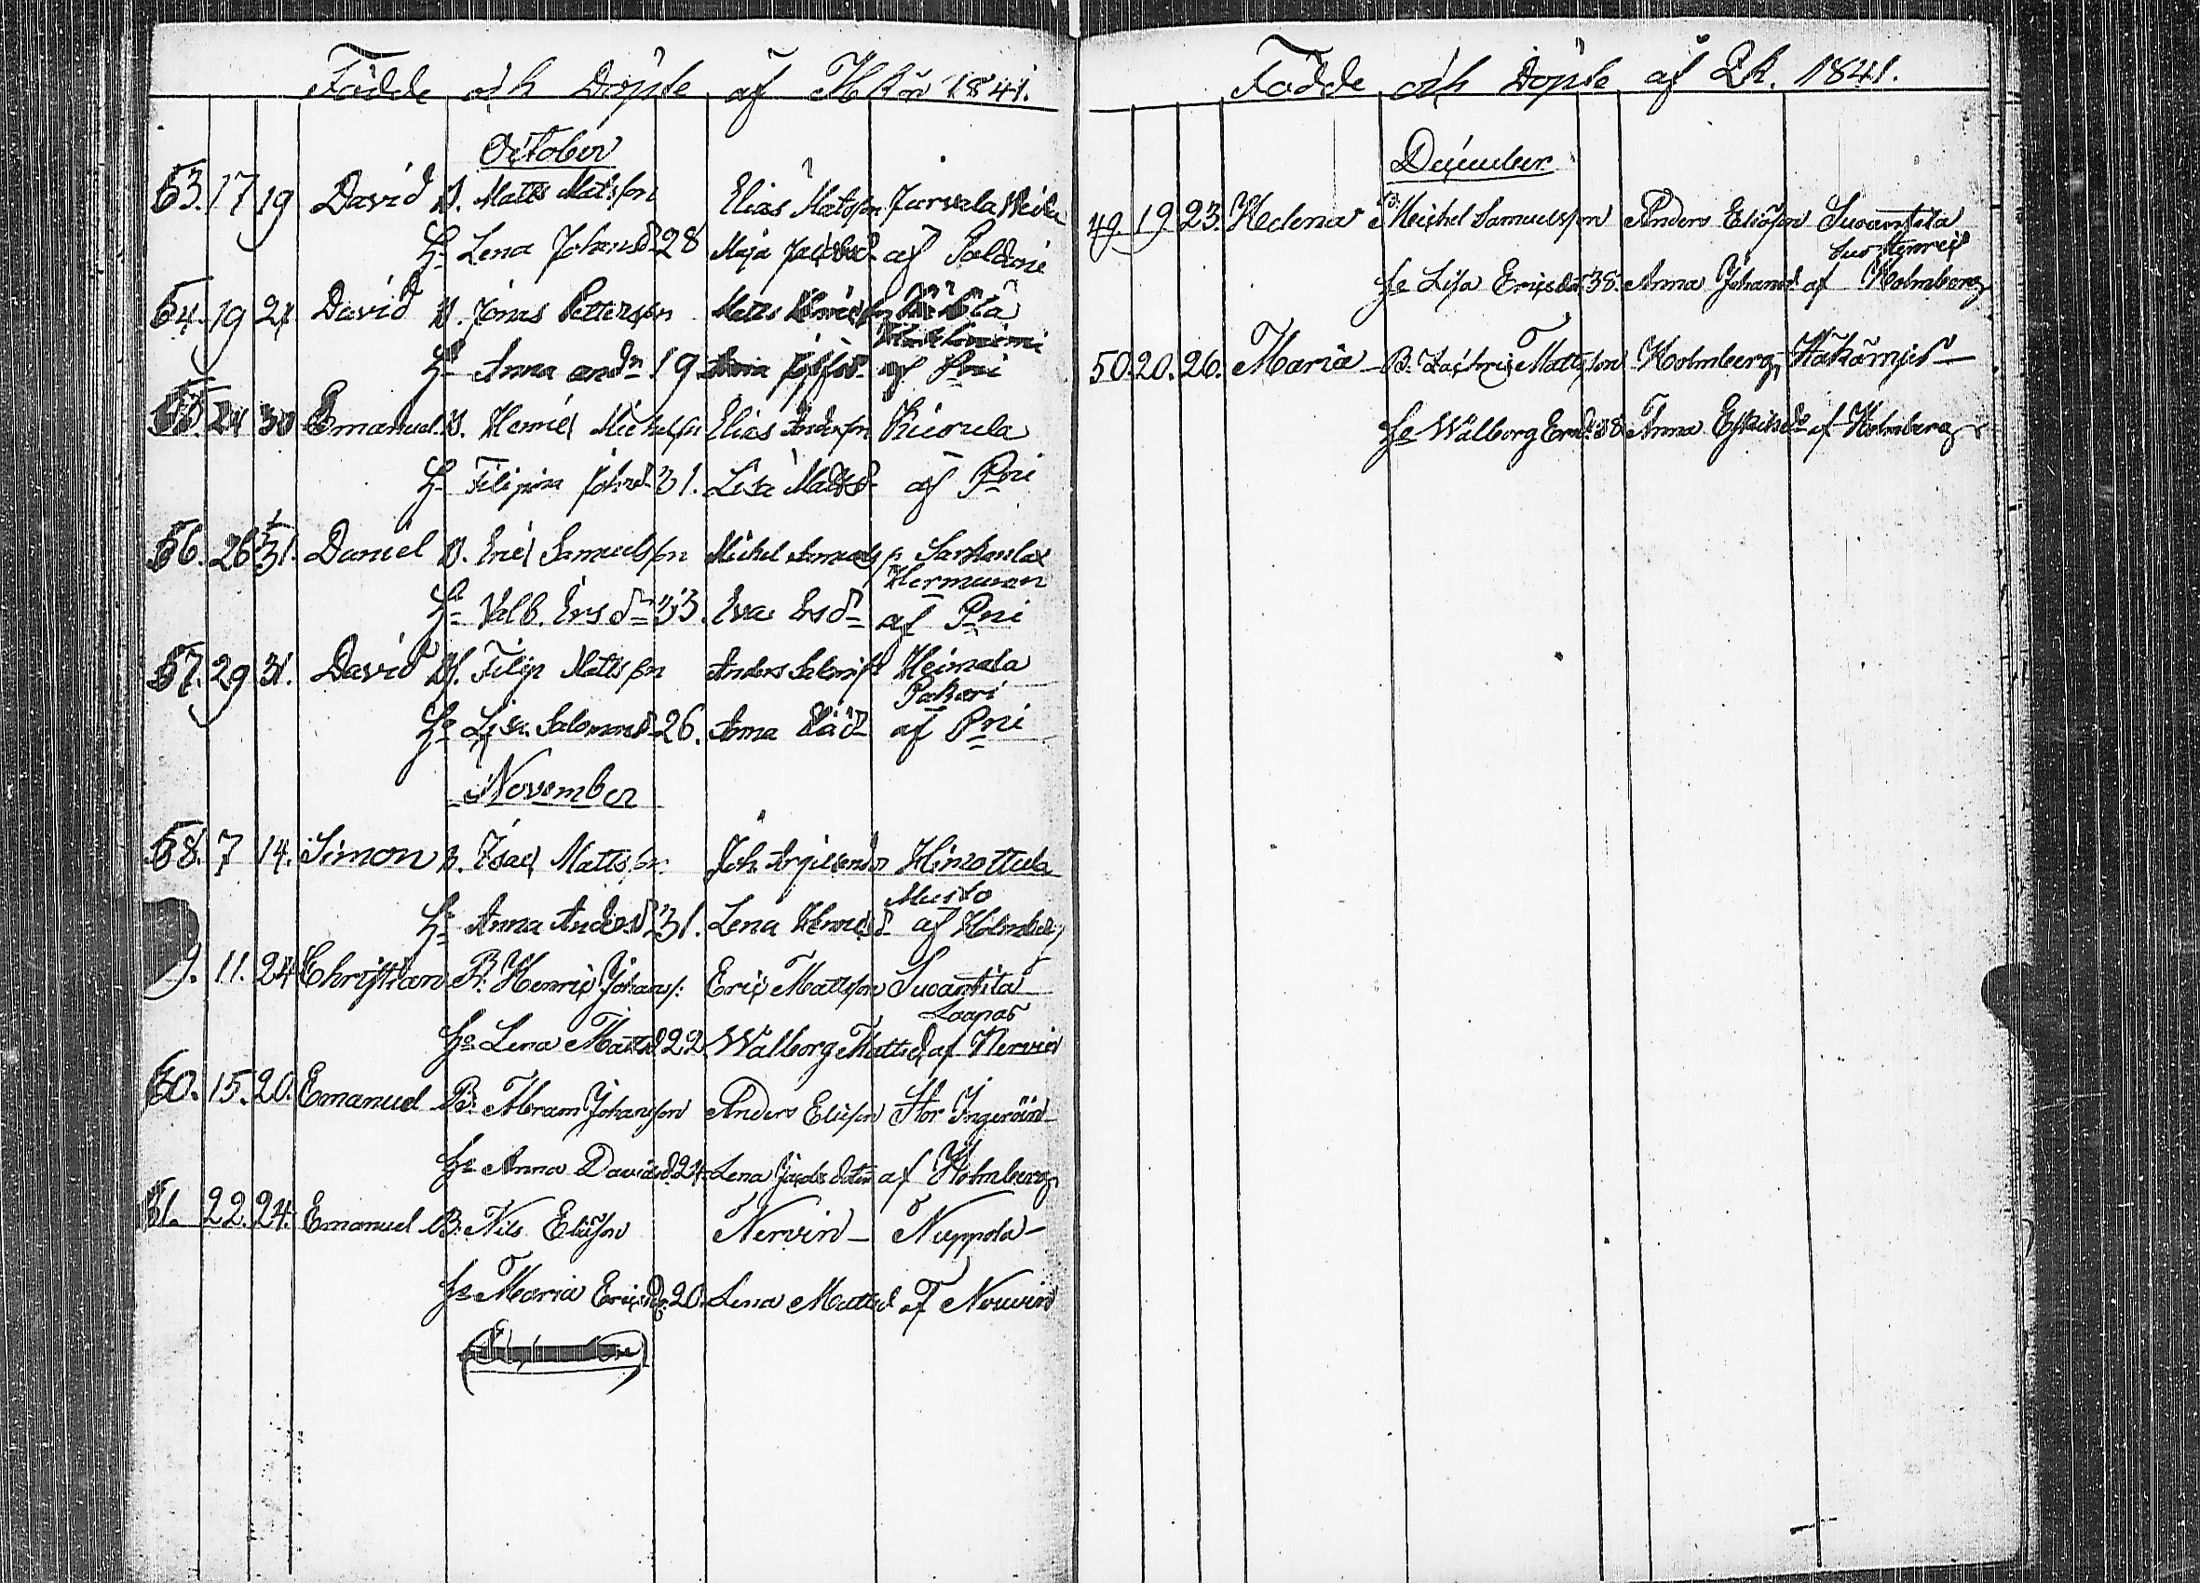 Födde och Döpte af M Kön 1841.
October
53. 17 19 David B. Matts Matsson Elias Matsson Jurvala
H= Lena Johansd= 28 Maja af
54. 19 24 David B. Jonas Pettersson Matts
H= Anna andn 19 af Pni
55. 24 30 Emanuel B. Henric Michelsson Elias Andersson Kiurula
H= Filippa Johnd 31. Lisa Mattsd= af Pni
56. 26 31. Daniel B. Eric Samuelsson Michel Sarkalax
Hermunen
H= Valb. Ersd= 33. Eva Ersd= af Pni
57. 29 31. David B. Filip Mattsson Anders Heimala
Pakari
H= Lisa Salomonsd 26. Anna af Pni
November
58. 7 14. Simon B. Isac Mattsson Joh. Himottula
Musto
H= Anna Andersd 31. Lena Henricsd= af
9. 11. 24 Christian B. Henric Johans: Eric Mattsson Suoanttila
Loapas
He Lena Mattsd 22 Walborg Mattsd af Nervin
60. 15. 20. Emanuel B: Abram Johansson Anders Eliesson Stor Ingeröin
He Anna Davidsd. 24. Lena Jacobsdoter af Holmberg
61. 22. 24. Emanuel B: Nils Eliesson Nervin Nuppola
He Maria Ericsd 20. Lena Mattsd af Nervin
Födde och Döpte af Q.k. 1841.
December
49 19 23. Helena B. Michel Samuelsson Anders Eliesson Suoanttila
He Lisa Ericsd 38. Anna Johansd af Holmberg
50. 20. 26. Maria B. Zachris Mattsson Holmberg,
He Wålborg Ericsd 38 Anna af Holmberg